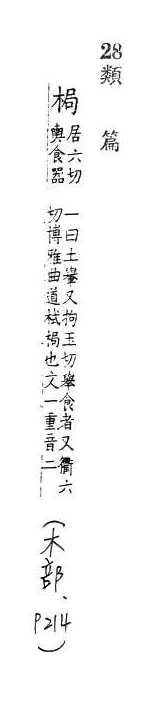 28
類篇
梮
居六切
輿食器
一曰土轝又拘玉切轝食者又衢六
切博雅曲道栻梮也文一重音二
(木部、P214)